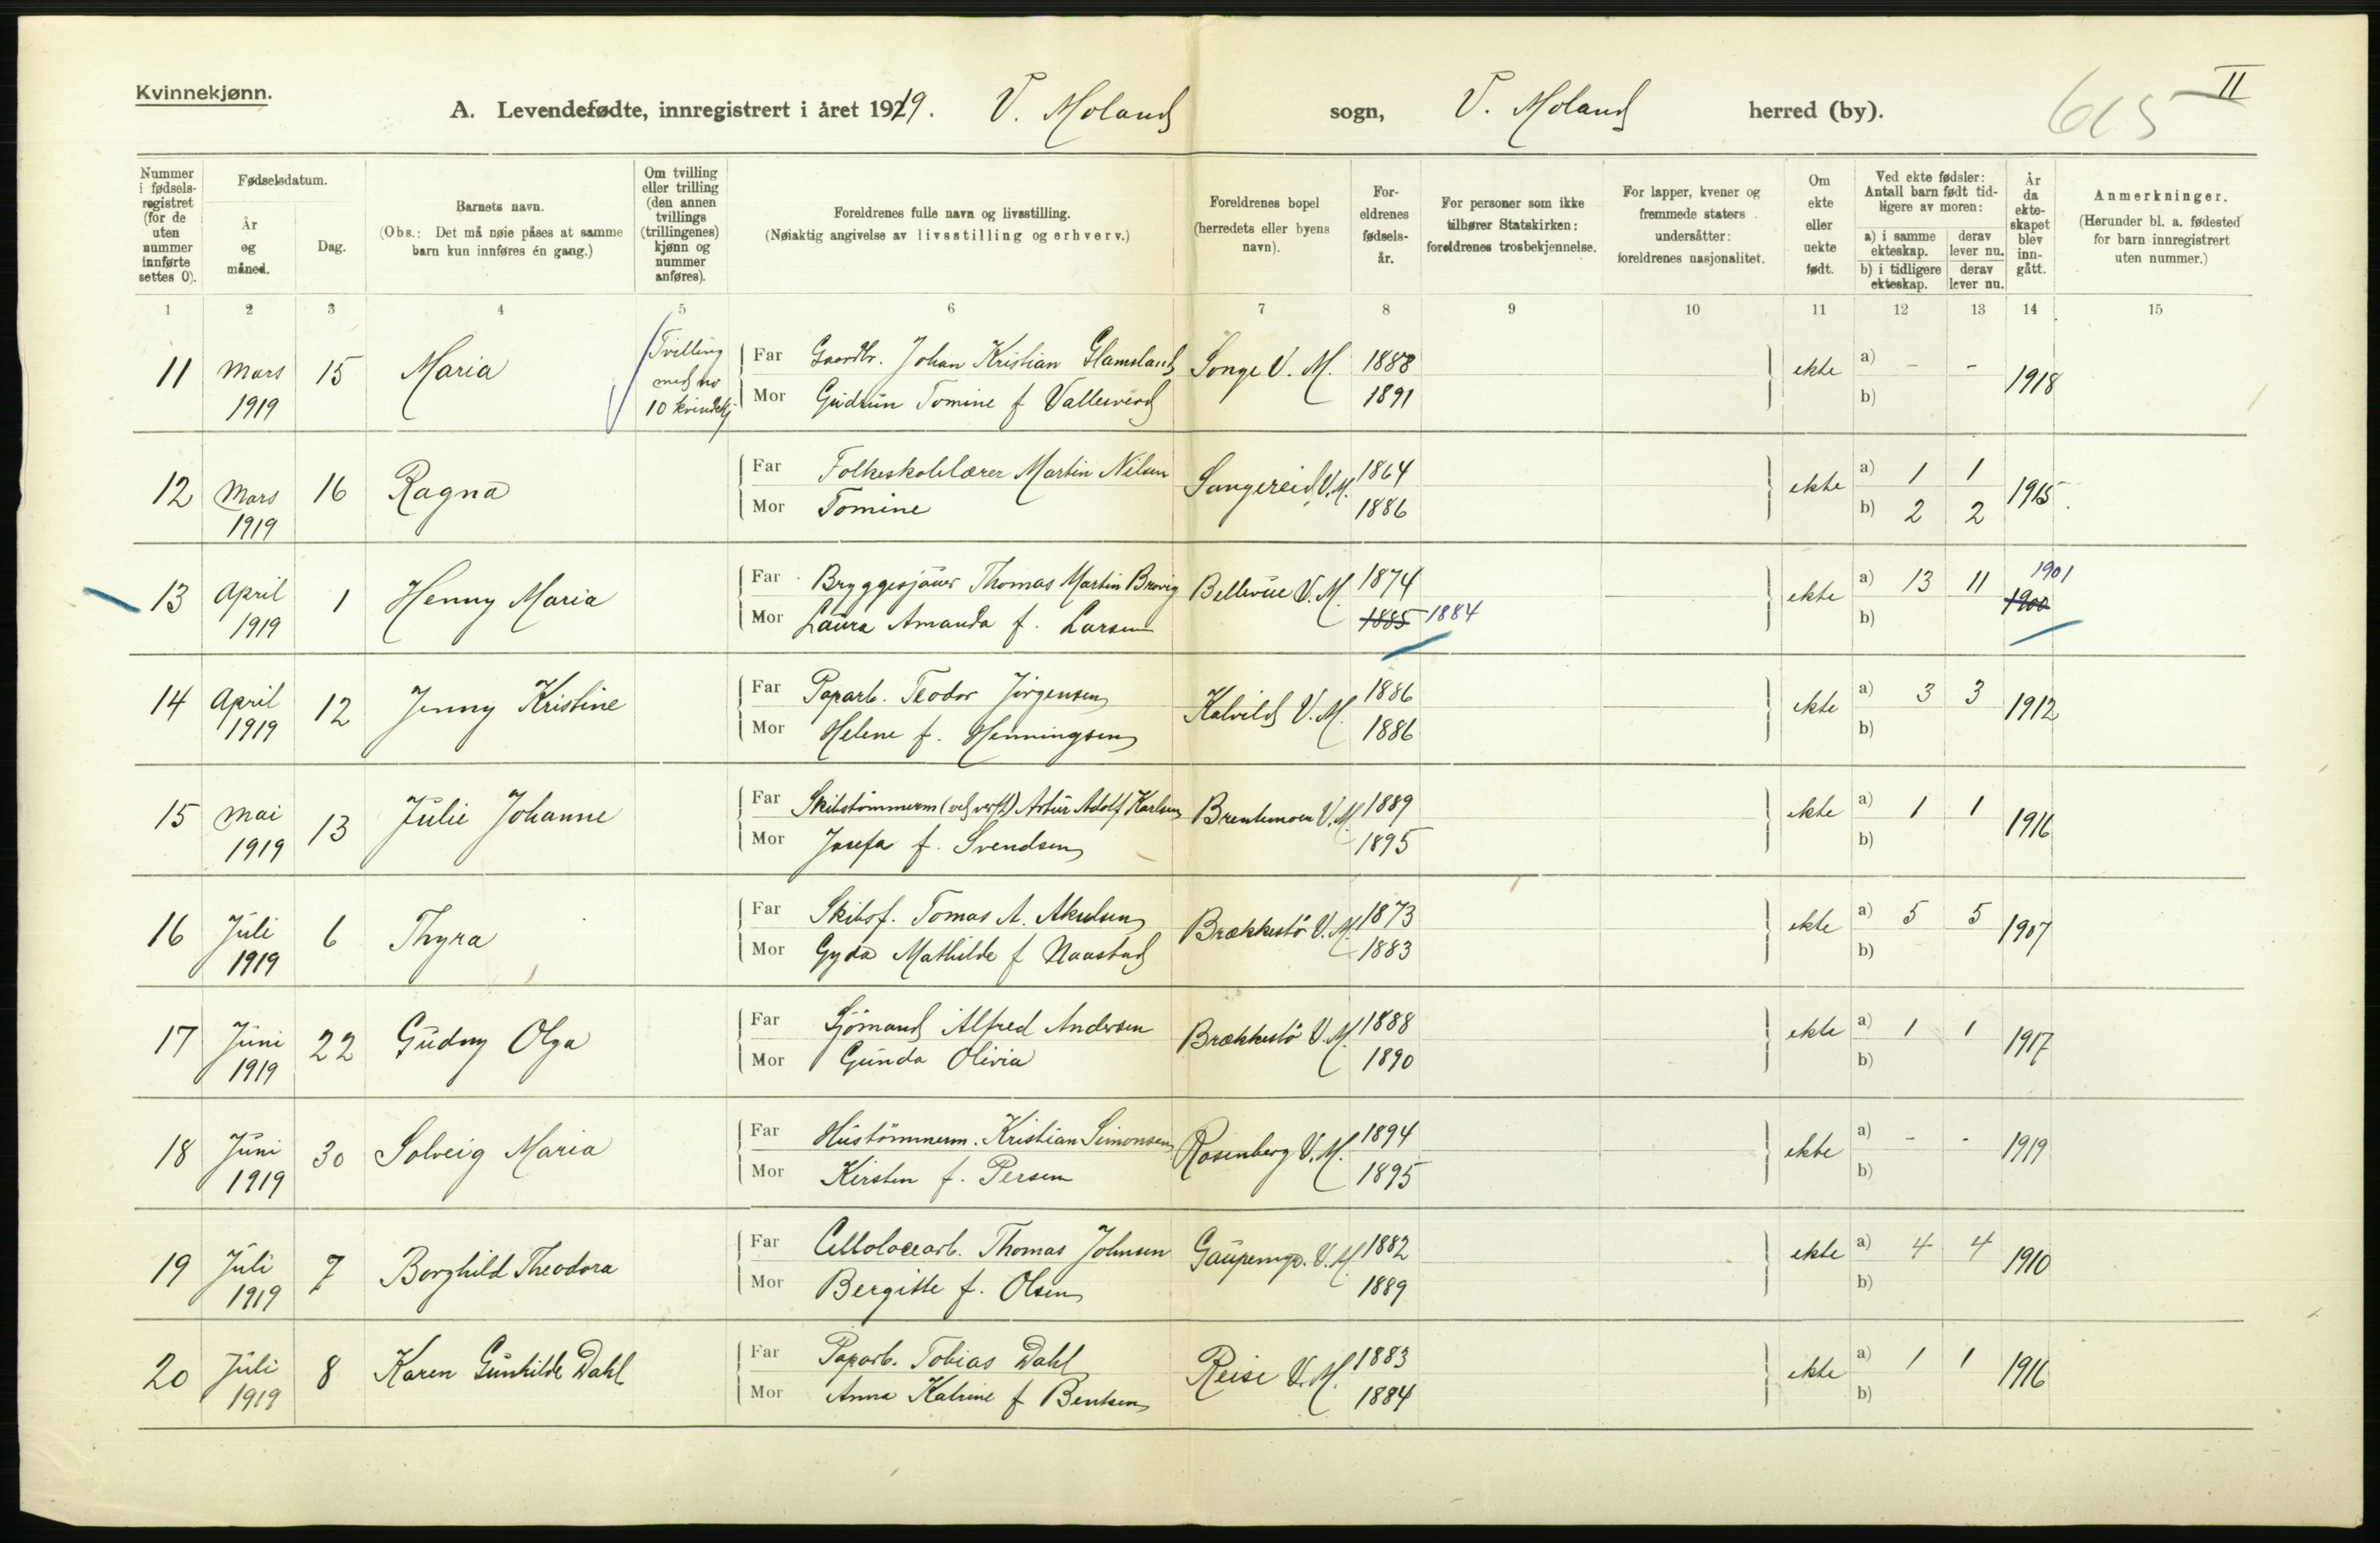 Kvinnekjønn.
A. Levendefødte, innregistrert i året 1919. V. Moland sogn, V. Moland herred (by). 615 II
Nummer i fødsels-registret (for de uten nummer innførte settes 0).
Fødselsdatum.
År og måned.
Dag.
Barnets navn.
(Obs.: Det må nøie påses at samme barn kun innføres én gang.)
Om tvilling eller trilling (den annen tvillings (trillingenes) kjønn og nummer anføres).
Foreldrenes fulle navn og livsstilling.
(Nøiaktig angivelse av livsstilling og erhverv.)
Foreldrenes bopel (herredets eller byens navn).
For-eldrenes fødsels-år.
For personer som ikke tilhører Statskirken: foreldrenes trosbekjennelse.
For lapper, kvener og fremmede staters undersåtter: foreldrenes nasjonalitet.
Om ekte eller uekte født.
Ved ekte fødsler: Antall barn født tid-ligere av moren:
a) i samme ekteskap. derav lever nu.
b) i tidligere ekteskap. derav lever nu.
År da ekte-skapet blev inn-gått.
Anmerkninger.
(Herunder bl. a. fødested for barn innregistrert uten nummer.)
1 2 3 4 5 6 7 8 9 10 11 12 13 14 15
11 Mars 1919 15 Maria Tvilling med no 10 kvindekj
Far Gaardbr. Johan Kristian Glamsland Songe V. M. 1888 ekte a) - - 1918
Mor Gudrun Tomine f Vallesverd 1891 b)
12 Mars 1919 16 Ragna
Far Folkeskolelærer Martin Nilsen Sangereid V. M. 1864 ekte a) 1 1 1915
Mor Tomine 1886 b) 2 2
13 April 1919 1 Henny Maria
Far Bryggesjauer Thomas Martin Brovig Bellevue V. M. 1874 ekte a) 13 11 1901 1900
Mor Laura Amanda f. Larsen 1885 1884 b)
14 April 1919 12 Jenny Kristine
Far Paparb. Teodor Jörgensen Kalvild V. M. 1886 ekte a) 3 3 1912
Mor Helene f. Henningsen 1886 b)
15 Mai 1919 13 Julie Johanne
Far Skibstömmerm (ved verft) Artur Adolf Karlsen Brentemoen V. M. 1889 ekte a) 1 1 1916
Mor Josefa f. Svendsen 1895 b)
16 Juli 1919 6 Thyra
Far Skibsf. Tomas A. Akselsen Brækkestö V. M. 1873 ekte a) 5 5 1907
Mor Gyda Mathilde f Naastad 1883 b)
17 Juni 1919 22 Gudny Olga
Far Sjömand Alfred Andersen Brækkestö V. M. 1888 ekte a) 1 1 1917
Mor Gunda Olivia 1890 b)
18 Juni 1919 30 Solveig Maria
Far Hustömmerm. Kristian Simonsen Rosenberg V. M. 1894 ekte a) - - 1919
Mor Kirsten f. Persen 1895 b)
19 Juli 1919 7 Borghild Theodora
Far Cellolocearb. Thomas Johnsen Gaupemyr. V. M 1882 ekte a) 4 4 1910
Mor Bergitte f. Olsen 1889 b)
20 Juli 1919 8 Karen Gunhilde Dahl
Far Paparb. Tobias Dahl Reise V. M. 1883 ekte a) 1 1 1916
Mor Anna Katrine f Bentsen 1884 b)